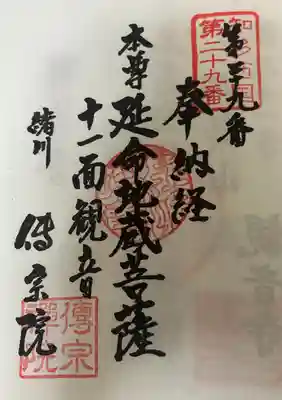 知多四国
第二十九番
第二十九番
奉納経
本尊
延命地蔵菩薩
十一面観音
緒川
傳宗院
傳宗禪院